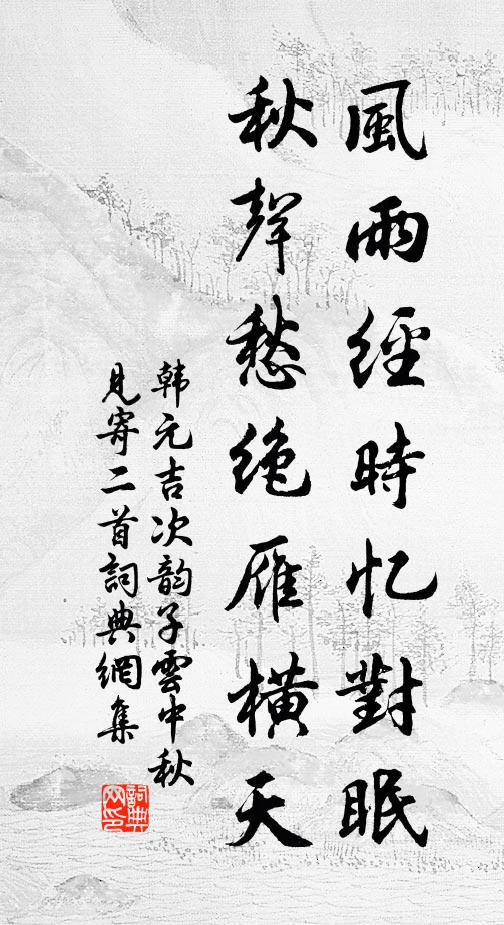 風雨經時忆對眠
秋聲愁絶雁橫天
韩元吉次韵子雲中秋
見寄二首詞典網集
詞典网印